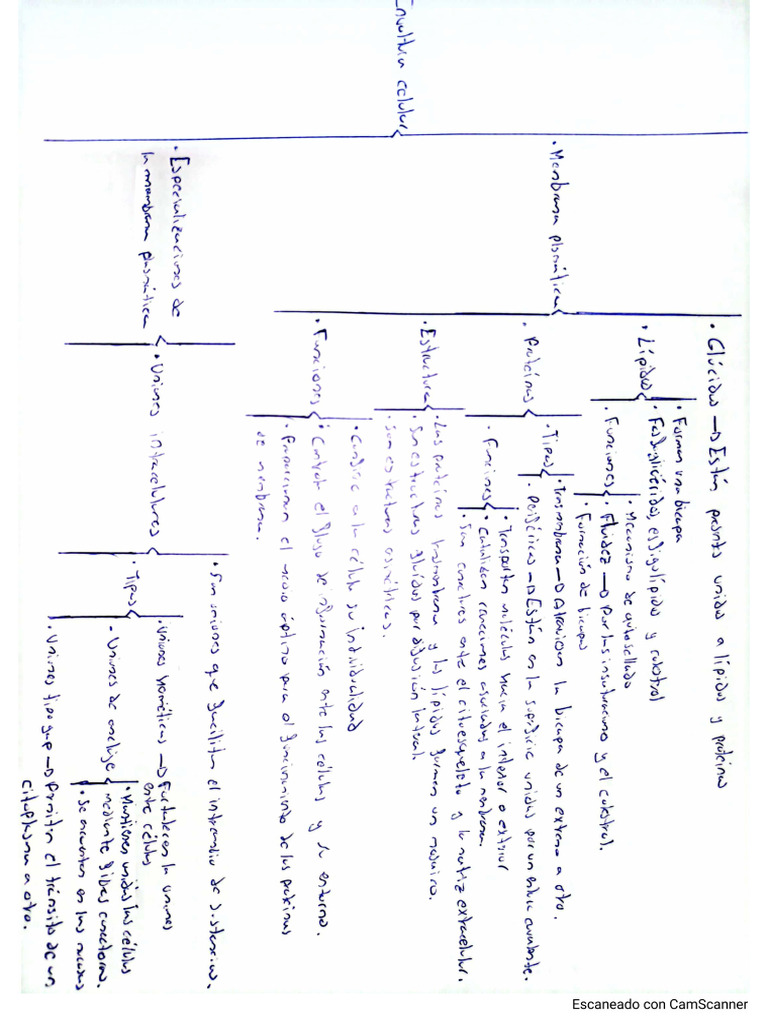 Envoltura celular
• Membrana plasmática
• Glúcidos → Están pronto unidos a lípidos y proteínas
• Lípidos
• Forman una bicapa
• Fosfoglicéridos, esfingolípidos y colesterol
• Funciones
• Mecanismo de autosellado
• Fluidez → Por las insaturaciones y el colesterol.
• Formación de bicapas
• Proteínas
• Tipos
• Transmembrana → Atraviesan la bicapa de un extremo a otro.
• Periféricas → Están en la superficie unidas por un enlace covalente.
• Funciones
• Transportan moléculas hacia el interior o exterior
• Catalizan reacciones asociadas a la membrana
• Son conectores entre el citoesqueleto y la matriz extracelular.
• Estructura
• Las proteínas transmembrana y los lípidos forman un mosaico.
• Son estructuras fluidas por difusión lateral.
• Son estructuras asimétricas.
• Funciones
• Confiere a la célula su individualidad
• Controla el flujo de información entre las células y su entorno.
• Proporcionan el medio óptimo para el funcionamiento de las proteínas
de membrana.
• Especializaciones de
la membrana plasmática
• Uniones intracelulares
• Son uniones que facilitan el intercambio de sustancias.
• Tipos
• Uniones herméticas → Fortalecen la uniones
entre células
• Uniones de anclaje
• Mantienen unidas las células
mediante fibras conectoras.
• Se encuentran en las
• Uniones tipo gap → Permiten el tránsito de un
citoplasma a otro.
Escaneado con CamScanner